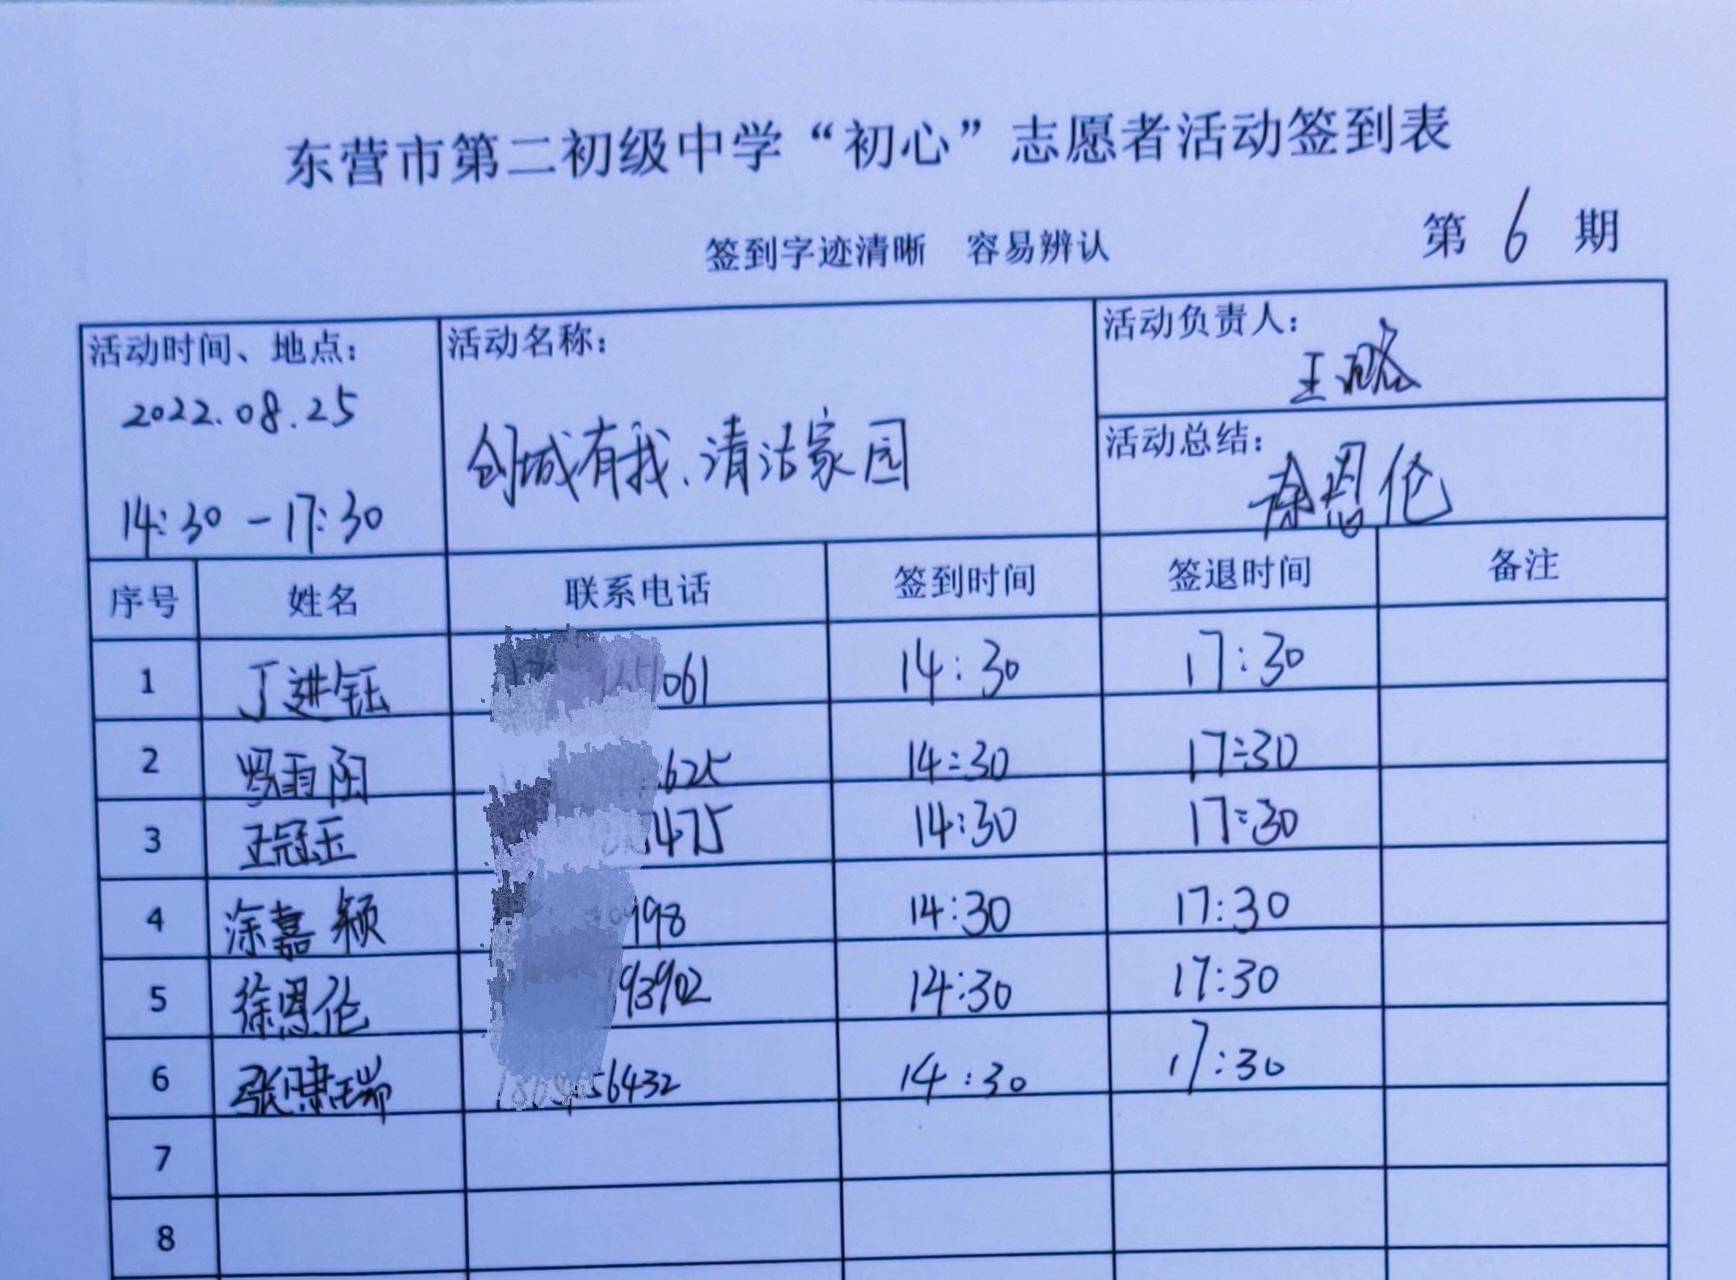 东营市第二初级中学“初心”志愿者活动签到表
签到字迹清晰 容易辨认
第 6 期
活动时间、地点：
2022.08.25
14:30 - 17:30
活动名称：
创城有我、清洁家园
活动负责人：
王璐
活动总结：
徐恩伦
序号 姓名 联系电话 签到时间 签退时间 备注
1 丁进钰 061 14:30 17:30
2 罗雨阳 625 14:30 17:30
3 王冠玉 475 14:30 17:30
4 涂嘉颖 998 14:30 17:30
5 徐恩伦 93902 14:30 17:30
6 张啸瑞 56432 14:30 17:30
7
8